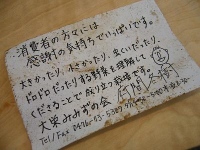 消費者の方々には
感謝の気持ちでいっぱいです。
大きかったり、小さかったり、虫くいだったり
ドロドロだったりする野菜を理解して
くださることで成り立つ農場です。
大栄みみずの会
Tel/Fax 0476-73-5389